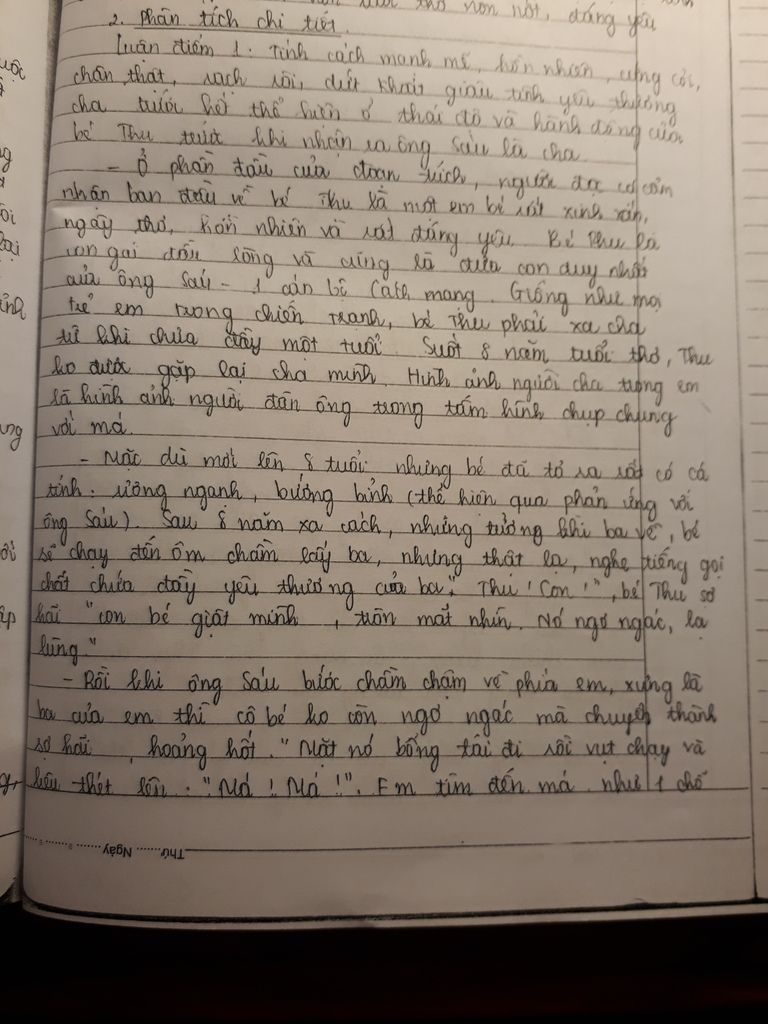 thơ non nớt, đáng yêu
2. Phân tích chi tiết.
Luận điểm 1: Tính cách mạnh mẽ, hồn nhiên, cứng cỏi,
chân thật, rạch ròi, dứt khoát giàu tình yêu thương
cha trước hết thể hiện ở thái độ và hành động của
bé Thu trước khi nhận ra ông Sáu là cha
- Ở phần đầu của đoạn trích, người đọc có cảm
nhận ban đầu về bé Thu là một em bé rất xinh xắn,
ngây thơ, hồn nhiên và rất đáng yêu. Bé Thu là
con gái đầu lòng và cũng là đứa con duy nhất
của ông Sáu - 1 cán bộ Cách mạng. Giống như mọi
trẻ em trong chiến tranh, bé Thu phải xa cha
từ khi chưa đầy một tuổi. Suốt 8 năm tuổi thơ, Thu
ko được gặp lại cha mình. Hình ảnh người cha trong em
là hình ảnh người đàn ông trong tấm hình chụp chung
với má.
- Mặc dù mới lên 8 tuổi nhưng bé đã tỏ ra rất có cá
tính: ương ngạnh, bướng bỉnh (thể hiện qua phản ứng với
ông Sáu). Sau 8 năm xa cách, nhưng tưởng khi ba về, bé
sẽ chạy đến ôm chầm lấy ba, nhưng thật lạ, nghe tiếng gọi
chất chứa đầy yêu thương của ba: "Thu! Con!", bé Thu sợ
hãi "con bé giật mình, tròn mắt nhìn. Nó ngơ ngác, lạ
lùng."
- Rồi khi ông Sáu bước chầm chậm về phía em, xưng là
ba của em thì cô bé ko còn ngơ ngác mà chuyển thành
sợ hãi, hoảng hốt. "Mặt nó bỗng tái đi rồi vụt chạy và
kêu thét lên: "Má! Má!". Em tìm đến má như 1 chỗ
Thứ...... Ngày......